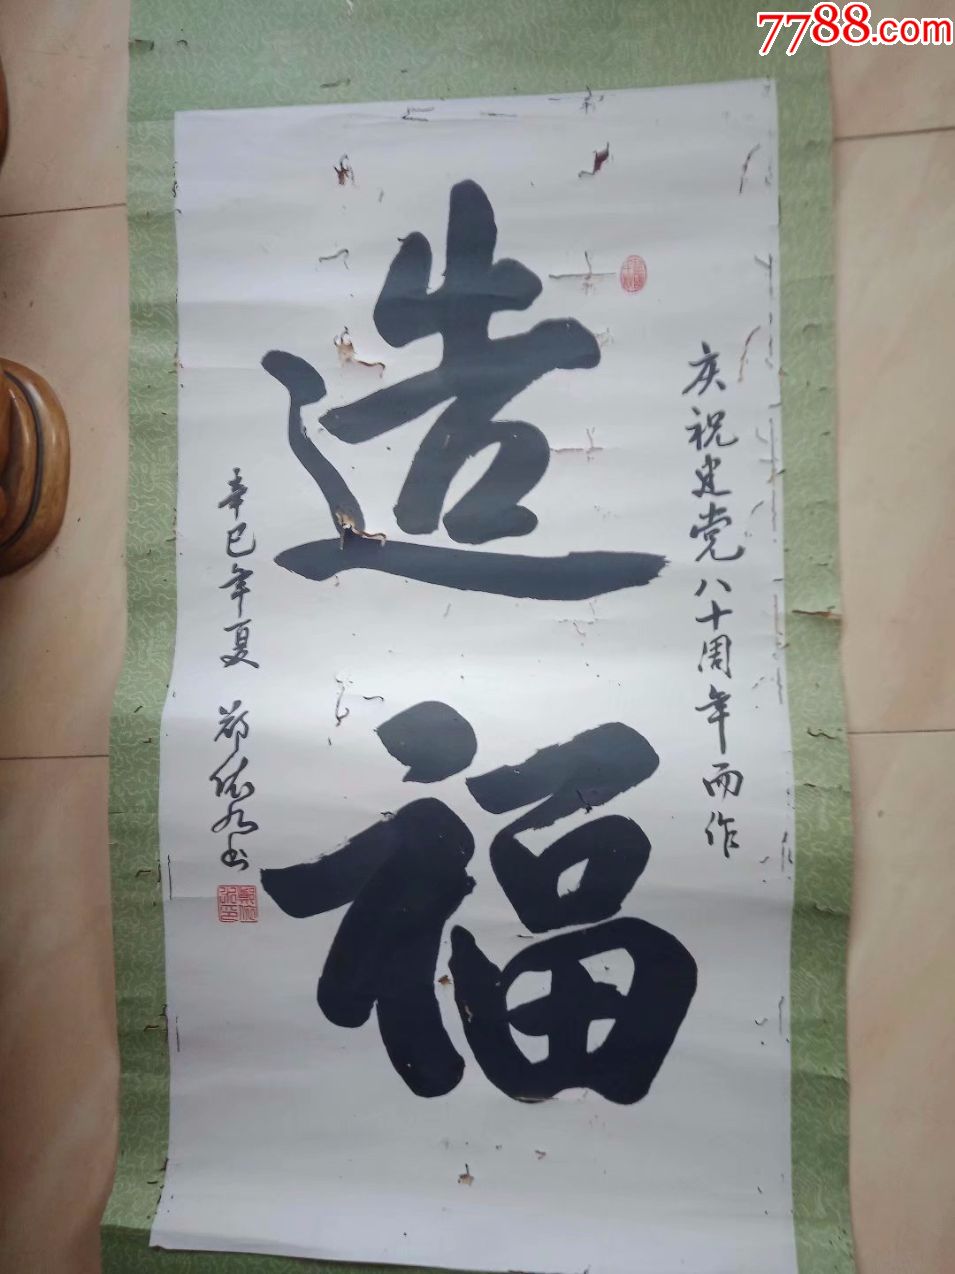 7788.com
庆祝建党八十周年而作
造福
辛巳年夏
郑依九书